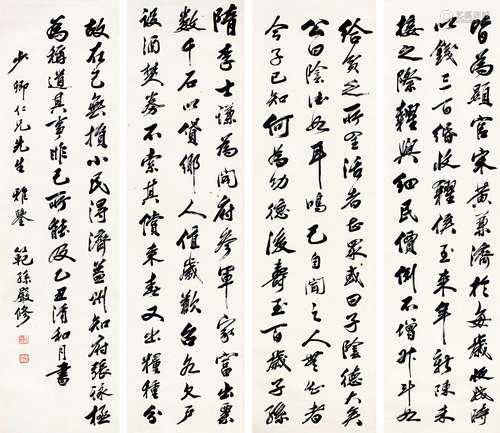 隋李士謙為開府參軍家富出粟
數千石以貸鄉人值歲歉召欠戶
設酒焚券不索其償來春又出糧種分
給貧乏所全活者甚眾或曰子陰德大矣
公曰陰德如耳鳴己自聞之人無知者
今子已知何為陰德後壽至百歲子孫
皆為顯官宋黃兼濟於每歲收成時
以錢三百緡收糴俟至來年新陳未
接之際糶與細民價例不增升斗如
故在己無損小民得濟益州知府張詠極
為稱道其事己所能及乙丑清和月書
少卿仁兄先生雅鑒 範孫嚴修